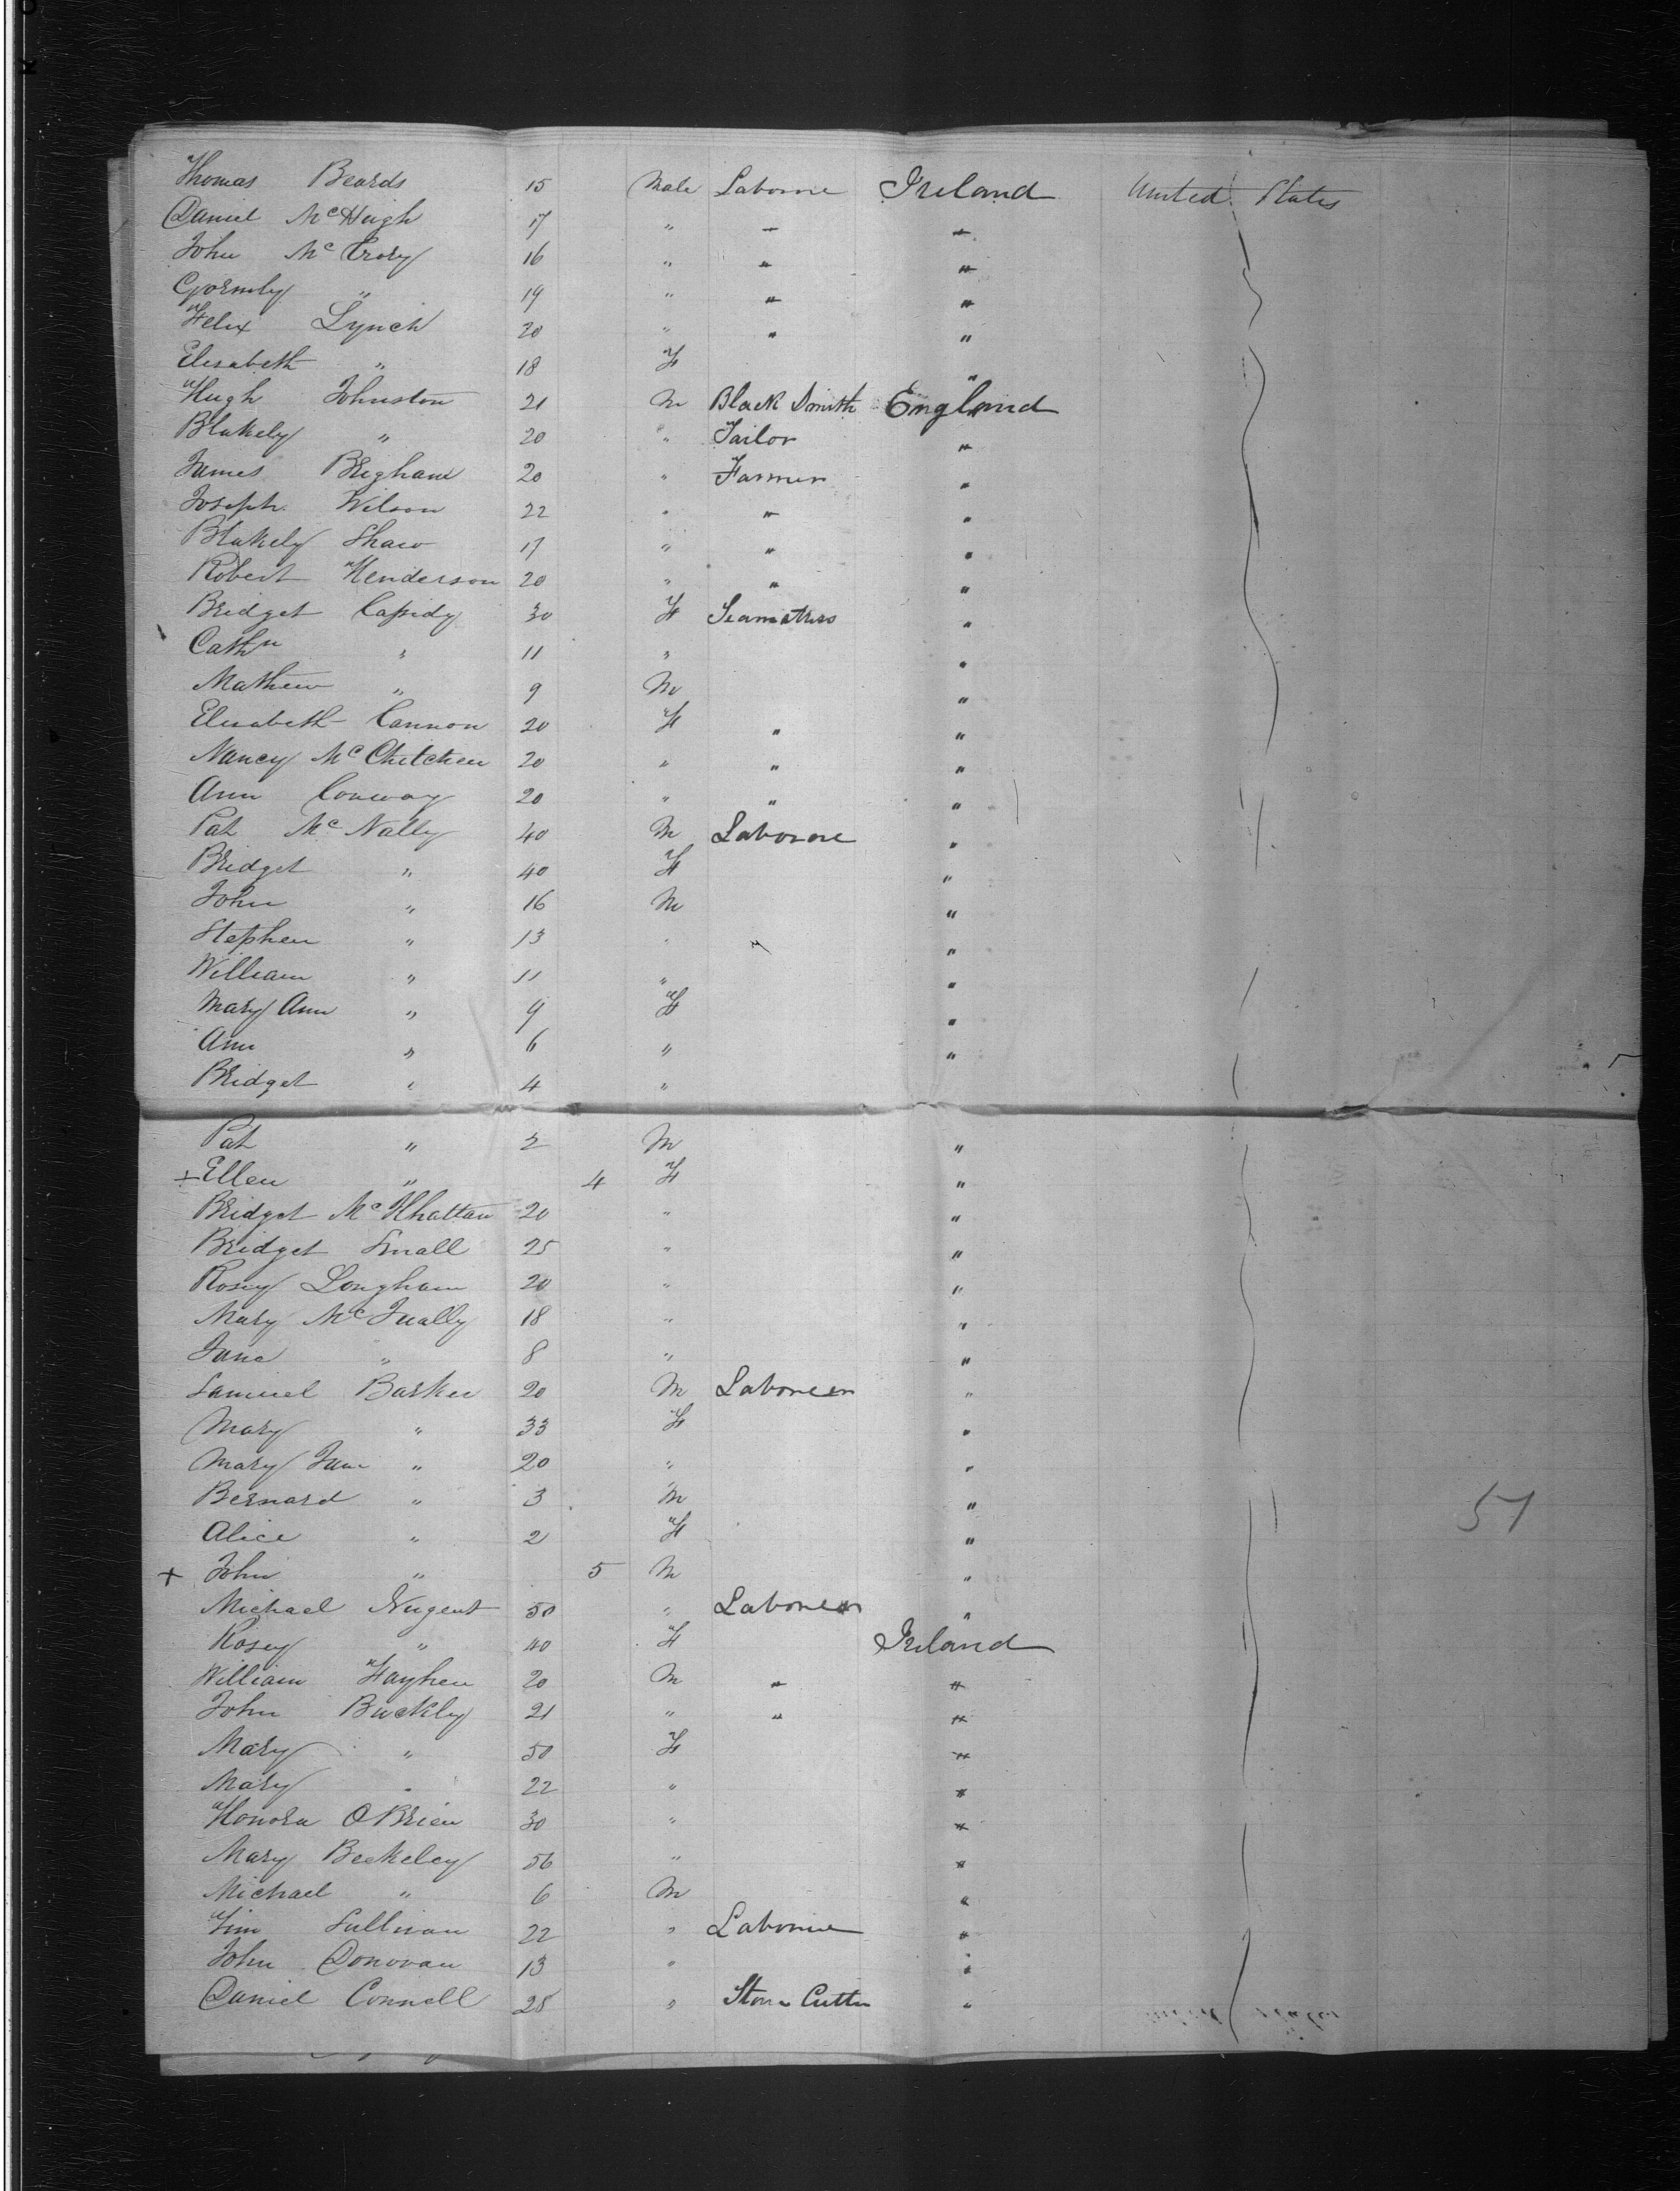 Thomas Beards 15 Male Laborer Ireland United States
Daniel McHugh 17 " " "
John McCrory 16 " " "
Gormly " 19 " " "
Felix Lynch 20 " " "
Elisabeth " 18 F "
Hugh Johnston 21 M Black Smith England
Blakely " 20 " Tailor "
James Brigham 20 " Farmer "
Joseph Wilson 22 " " "
Blakely Shaw 17 " " "
Robert Henderson 20 " " "
Bridget Cassidy 30 F Seamstress "
Cathn " 11 " "
Mathew " 9 M "
Elisabeth Cannon 20 F " "
Nancy McChitchen 20 " " "
Ann Conway 20 " " "
Pat McNally 40 M Laborer "
Bridget " 40 F "
John " 16 M "
Stephen " 13 " "
William " 11 " "
Mary Ann " 9 F "
Ann " 6 " "
Bridget " 4 "
Pat " 2 M "
+ Ellen " 4 F "
Bridget McKhattan 20 " "
Bridget Small 25 " "
Rosey Longham 20 " "
Mary McInally 18 " "
Jane " 8 " "
Samuel Barker 20 M Laborer "
Mary " 33 F "
Mary Jane " 20 " "
Bernard " 3 M " 51
Alice " 2 F "
+ John " 5 M "
Michael Nugent 50 " Laborer "
Rosey " 40 F Ireland
William Hayhen 20 M " "
John Buckly 21 " " "
Mary " 50 F "
Mary " 22 " "
Honora OBrien 30 " "
Mary Beekeley 56 " "
Michael " 6 M "
Tim Sullivan 22 " Laborer "
John Donovan 13 " "
Daniel Connell 28 " Stone Cutter "